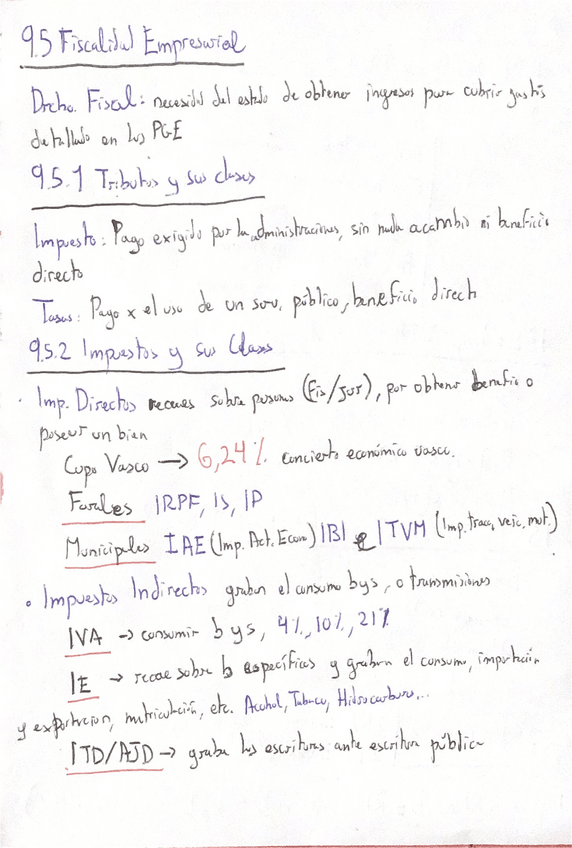 9.5 Fiscalidad Empresarial
Drcho. Fiscal: necesidad del estado de obtener ingresos para cubrir gastos
detallado en los PGE
9.5.1 Tributos y sus clases
Impuesto: Pago exigido por la administraciones, sin nada a cambio ni beneficio
directo
Tasas: Pago x el uso de un serv. público, beneficio direct
9.5.2 Impuestos y sus Clases
· Imp. Directos recaes sobre personas (Fis/Jur), por obtener beneficio o
poseer un bien
Cupo Vasco → 6,24% concierto económico vasco.
Forales IRPF, IS, IP
Municipales IAE (Imp. Act. Econo) IBI e ITVM (Imp. trac, veic, mot.)
• Impuestos Indirectos graban el consumo b y s, o transmisiones
IVA → consumir b y s, 4%, 10%, 21%
IE → recae sobre b específicas y graban el consumo, importación
y exportacion, matriculación, etc. Acohol, Tabaco, Hidrocarburo...
ITD/AJD → graba las escrituras ante escritura pública